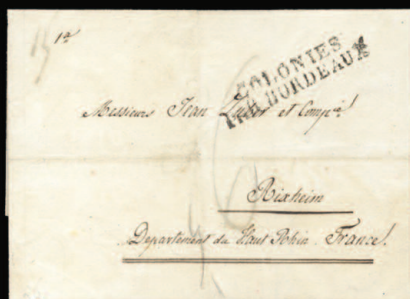 1a
COLONIES
PAR BORDEAUX
Messieurs Jean Zuber et Compie!
Rixheim
Departement du Haut Rhin. France!